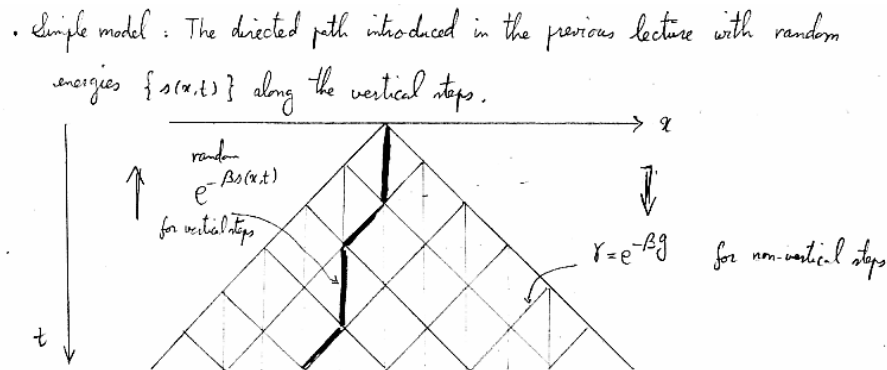 • Simple model : The directed path introduced in the previous lecture with random
energies { s(x,t) } along the vertical steps.
x
random
e^{-βs(x,t)}
for vertical steps
γ = e^{-βg} for non-vertical steps
t